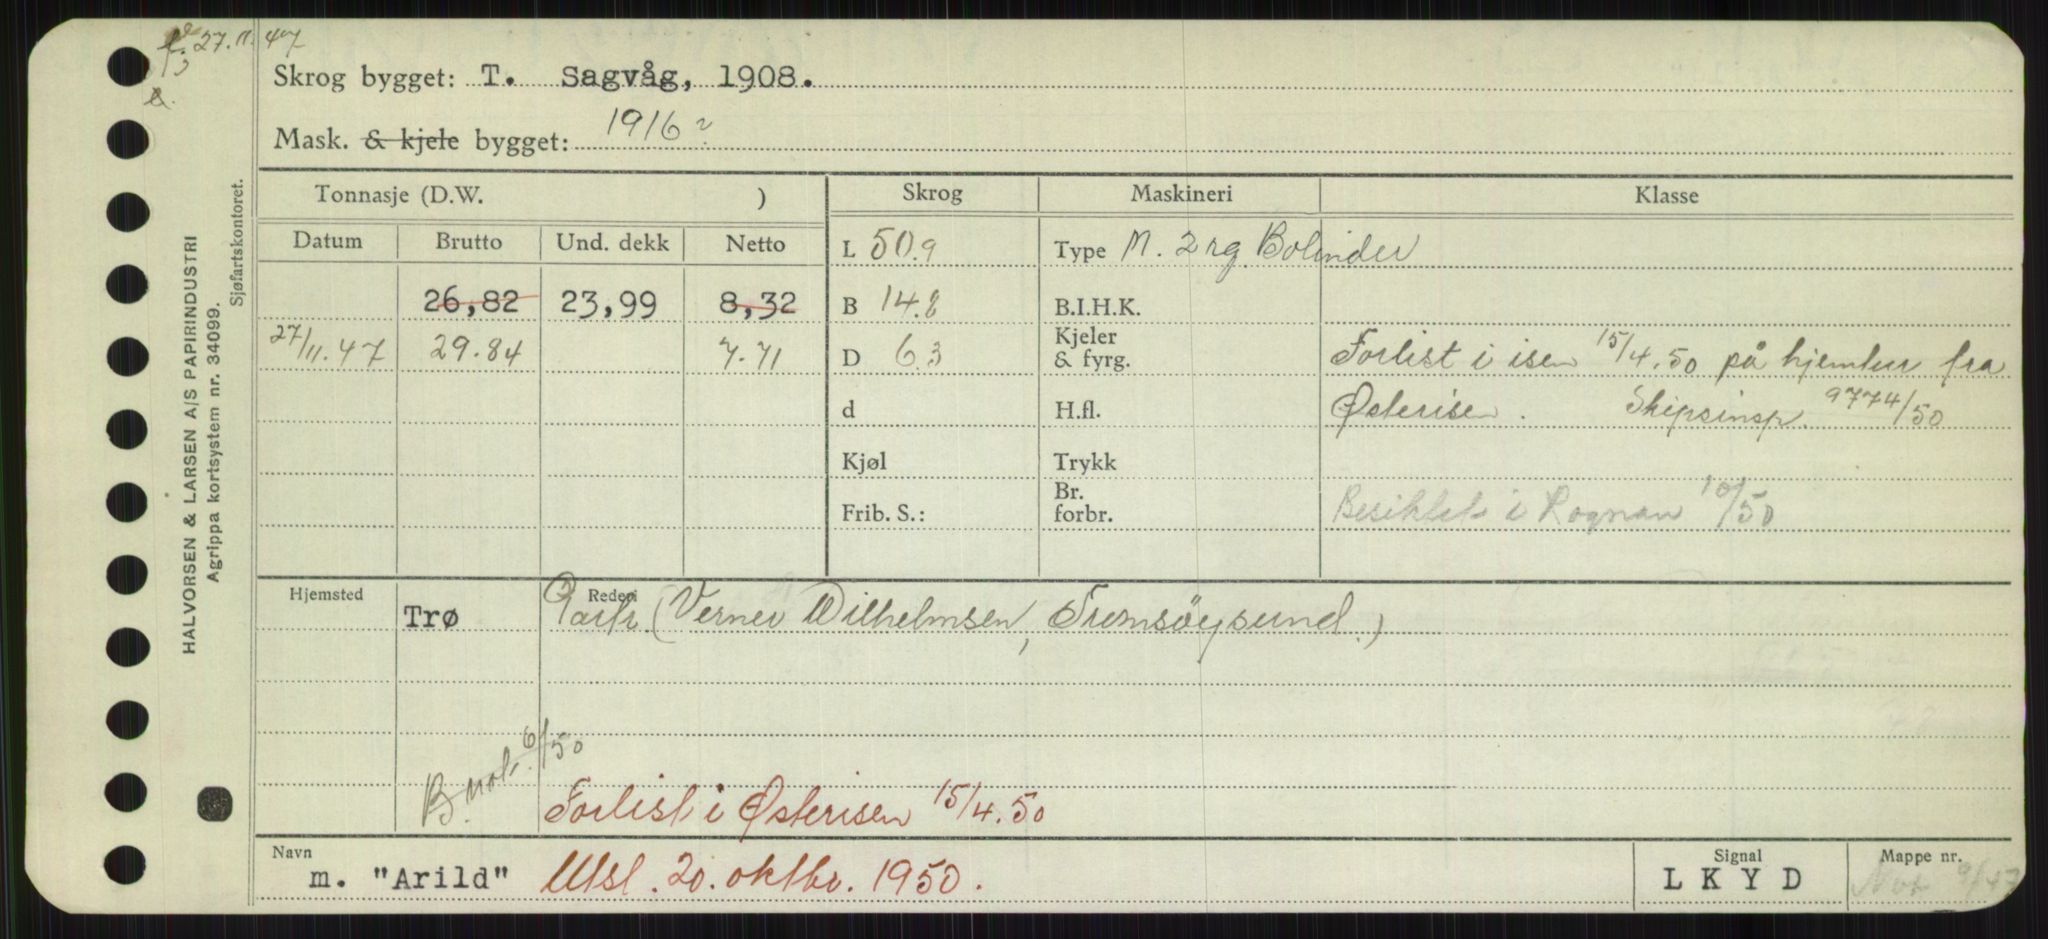 27.11.47
Skrog bygget: T. Sagvåg, 1908.
Mask. & kjele bygget: 1916?
HALVORSEN & LARSEN A/S PAPIRINDUSTRI
Agrippa kortsystem nr. 34099.
Sjøfartskontoret.
Tonnasje (D.W. ) Skrog Maskineri Klasse
Datum Brutto Und. dekk Netto L 50.9 Type M. 2 rg Bolinder
26,82 23,99 8,32 B 14.8 B.I.H.K.
27/11.47 29.84 7.71 D 6.3 Kjeler & fyrg. Forlist i isen 15/4.50 på hjemtur fra
d H.fl. Østerisen. Skipsinsp. 9774/50
Kjøl Trykk
Frib. S.: Br. forbr. Besiktet i Rognan 10/50
Hjemsted Trø Rederi Partr. (Verner Wilhelmsen, Tromsöysund.)
B. not. 6/50
Forlist i Østerisen 15/4.50
Navn Signal Mappe nr.
m. "Arild" Utsl. 20. oktbr. 1950. L K Y D 9/47